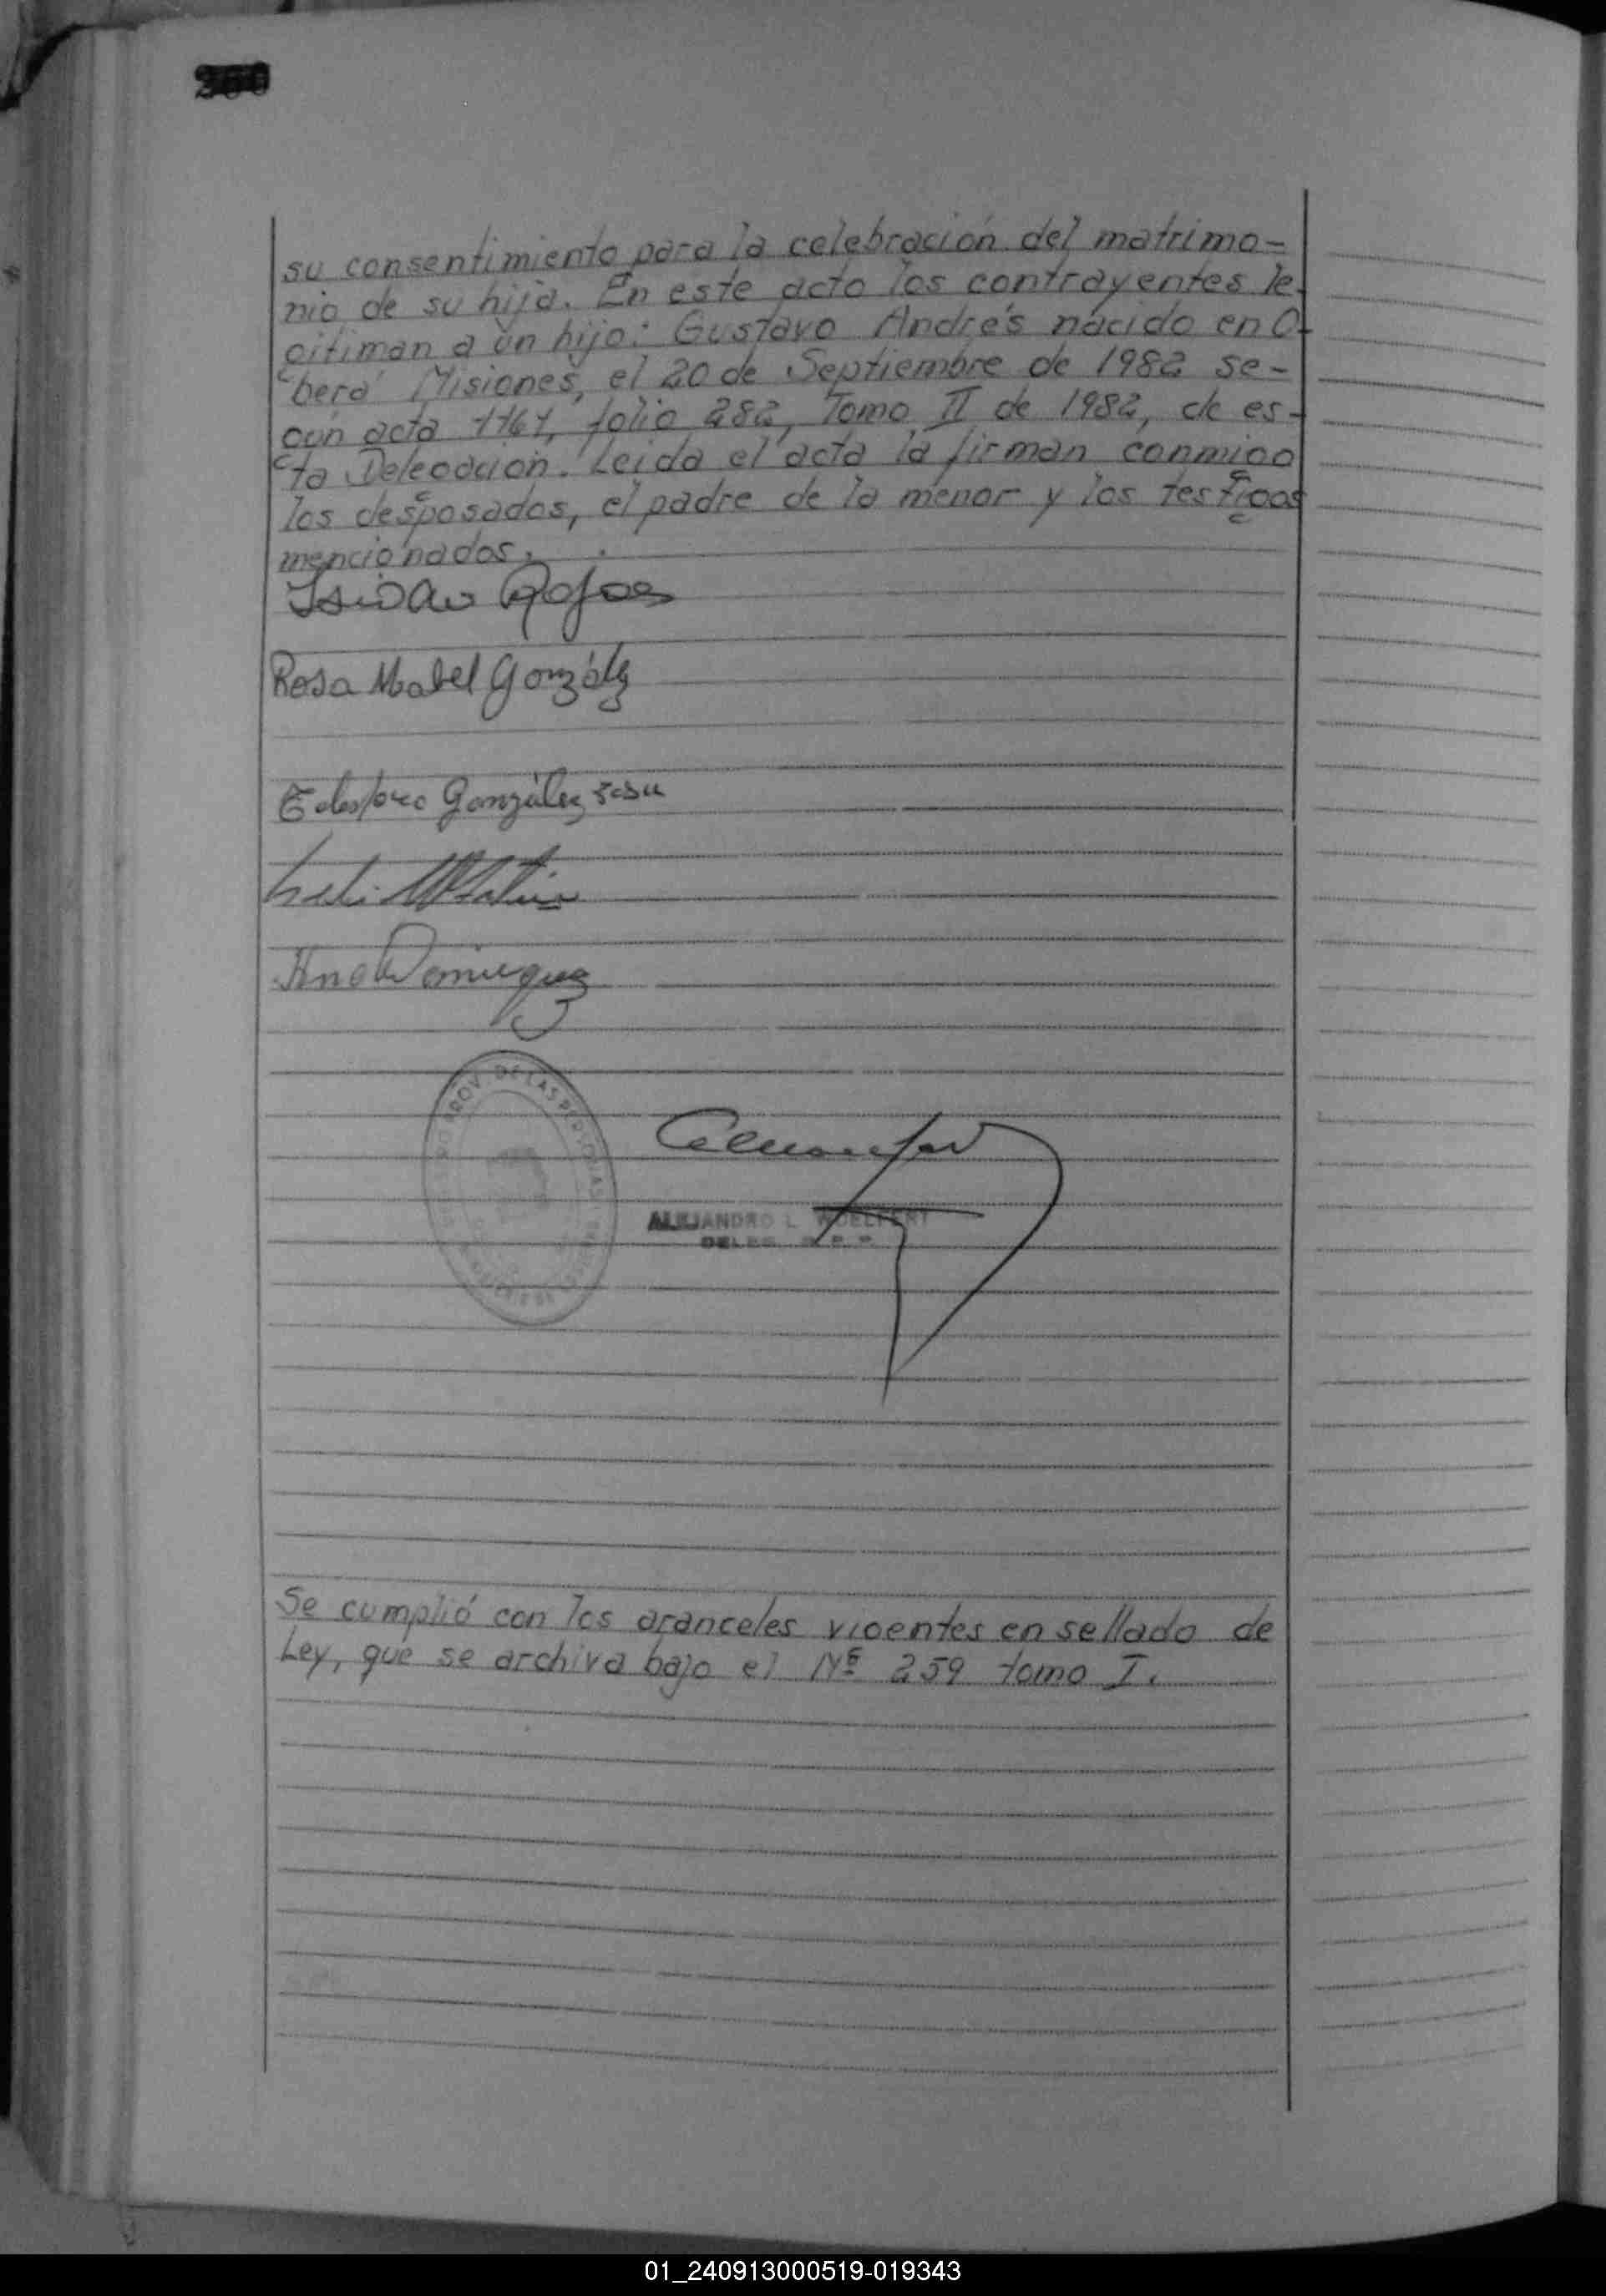 260
su consentimiento para la celebración del matrimo-
nio de su hija. En este acto los contrayentes le-
gitiman a un hijo: Gustavo Andrés nacido en O-
berá Misiones, el 20 de Septiembre de 1982 se-
gún acta 1161, folio 282, Tomo II de 1982, de es-
ta Delegación. Leida el acta la firman conmigo
los desposados, el padre de la menor y los testigos
mencionados.
Isidro Rojas
Rosa Mabel González
González Sosa
Ana Dominguez
PROV. DE LAS PERSONAS
ALEJANDRO L. WOELFERT
DELEG. R. P. P.
Se cumplió con los aranceles vigentes en sellado de
Ley, que se archiva bajo el Nº 259 tomo I.
01_240913000519-019343